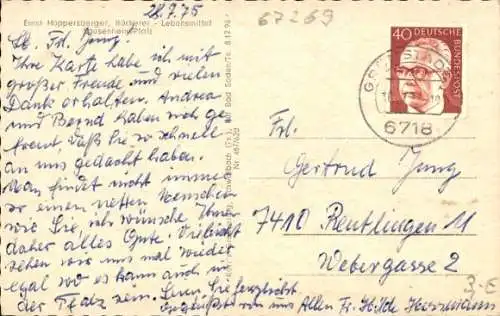 22.7.75
67269
Ernst Hoppersberger, Bäckerei - Lebensmittel
Lb. Frl. Jung!
Ihre Karte habe ich mit
großer Freude und vielen
Dank erhalten. Andrea
und Bernd haben sich ge-
freut, daß Sie so schnell
an uns gedacht haben.
Man findet nicht immer
so einen netten Menschen
wie Sie, ich wünsche Ihnen
daher alles Gute. Vielleicht
sehen wir uns mal wieder
egal wo es kann auch in
der Pfalz sein. Seien Sie herzlichst
gegrüßt von uns Allen Fr. Hilde
40
DEUTSCHE
BUNDESPOST
6718
Frl.
Gertrud Jung
7410 Reutlingen 11
Webergasse 2